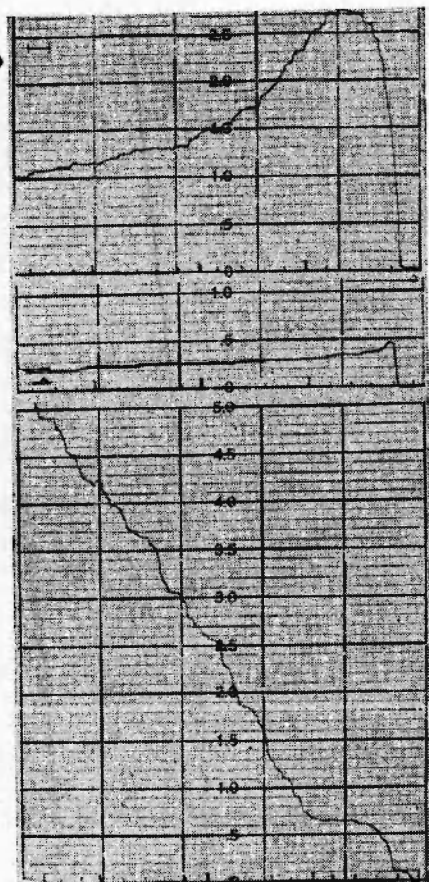 2.5
2.0
1.5
1.0
.5
0
1.0
.5
0
5.0
4.5
4.0
3.5
3.0
2.5
2.0
1.5
1.0
.5
0